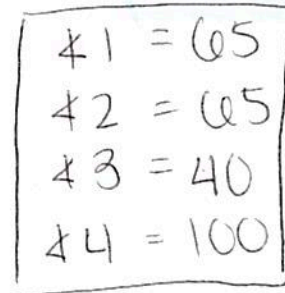 ∡1 = 65
∡2 = 65
∡3 = 40
∡4 = 100